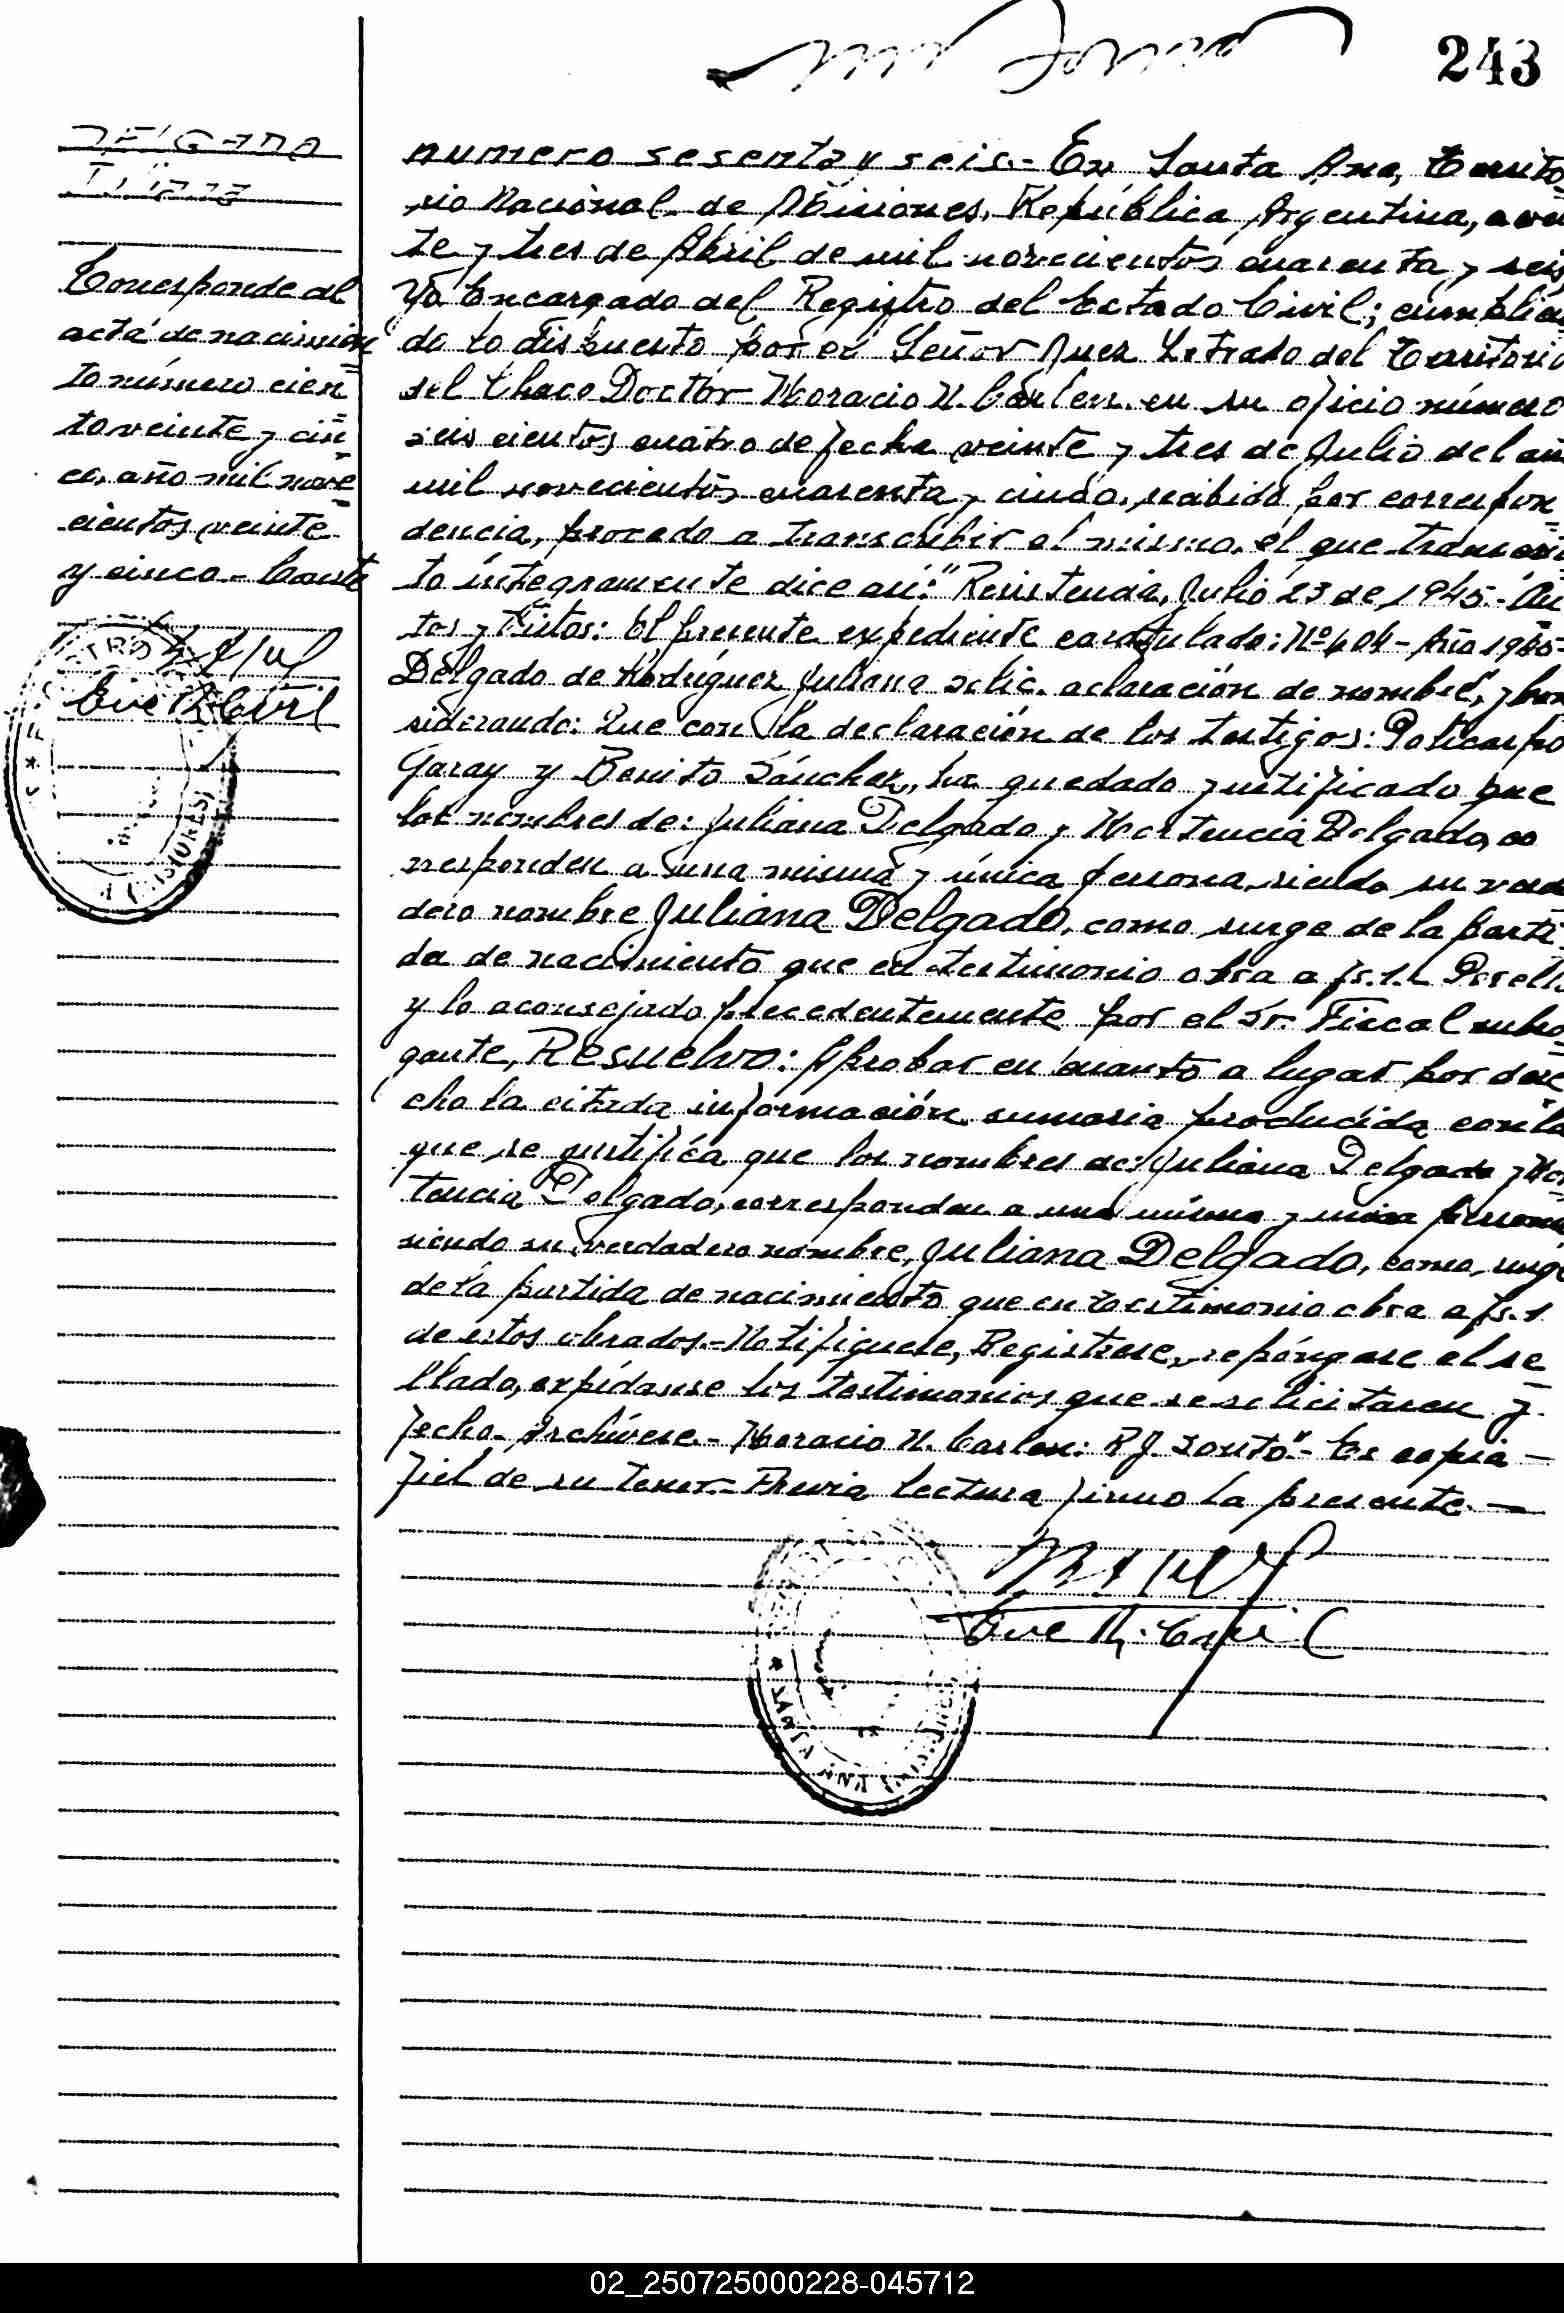 243
DELGADO
numero sesenta y seis.- En Santa Ana, Territo
rio Nacional de Misiones, República Argentina, a vein
te y tres de Abril de mil novecientos cuarenta y seis
Yo Encargado del Registro del Estado Civil; cumplien
do lo dispuesto por el Señor Juez Letrado del Territorio
del Chaco Doctor Horacio N. Carlen. en su oficio número
seis cientos cuatro de fecha veinte y tres de Julio del año
mil novecientos cuarenta y cinco, recibido por correspon
dencia, procedo a transcribir el mismo, el que transcrip
to íntegramente dice así: "Resistencia, Julio 23 de 1945.- Au
tos y Vistos: El presente expediente caratulado: Nº 404 - Año
Delgado de Rodríguez Juliana solic. aclaración de nombre", y Con
siderando: Que con la declaración de los testigos: Policarpo
Garay y Benito Sánchez, ha quedado justificado que
los nombres de: Juliana Delgado y Hortencia Delgado, co
rresponden a una misma y única persona, siendo su verda
dero nombre Juliana Delgado, como surge de la parti
da de nacimiento que en testimonio obra a fs. 1. Por ello
y lo aconsejado precedentemente por el Sr. Fiscal subro
gante, Resuelvo: Aprobar en cuanto a lugar por dere
cho la citada información sumaria producida con la
que se justifica que los nombres de: Juliana Delgado y Hor
tencia Delgado, corresponden a una misma y única persona,
siendo su verdadero nombre, Juliana Delgado, como surge
de la partida de nacimiento que en testimonio obra a fs. 1
de estos obrados.- Notifíquese, Regístrese, repóngase el se
llado, expídanse los testimonios que se solicitaren y
fecho. Archívese.- Horacio N. Carlen: R.J. Souto".- Es copia
fiel de su tenor.- Previa lectura firmo la presente.
Enc R. Civil
Corresponde al
acta de nacimien
to número cien
to veinte y cin
co, año mil nove
cientos veinte
y cinco.- Conste
Enc R. Civil
SANTA ANA (MISIONES)
02_250725000228-045712